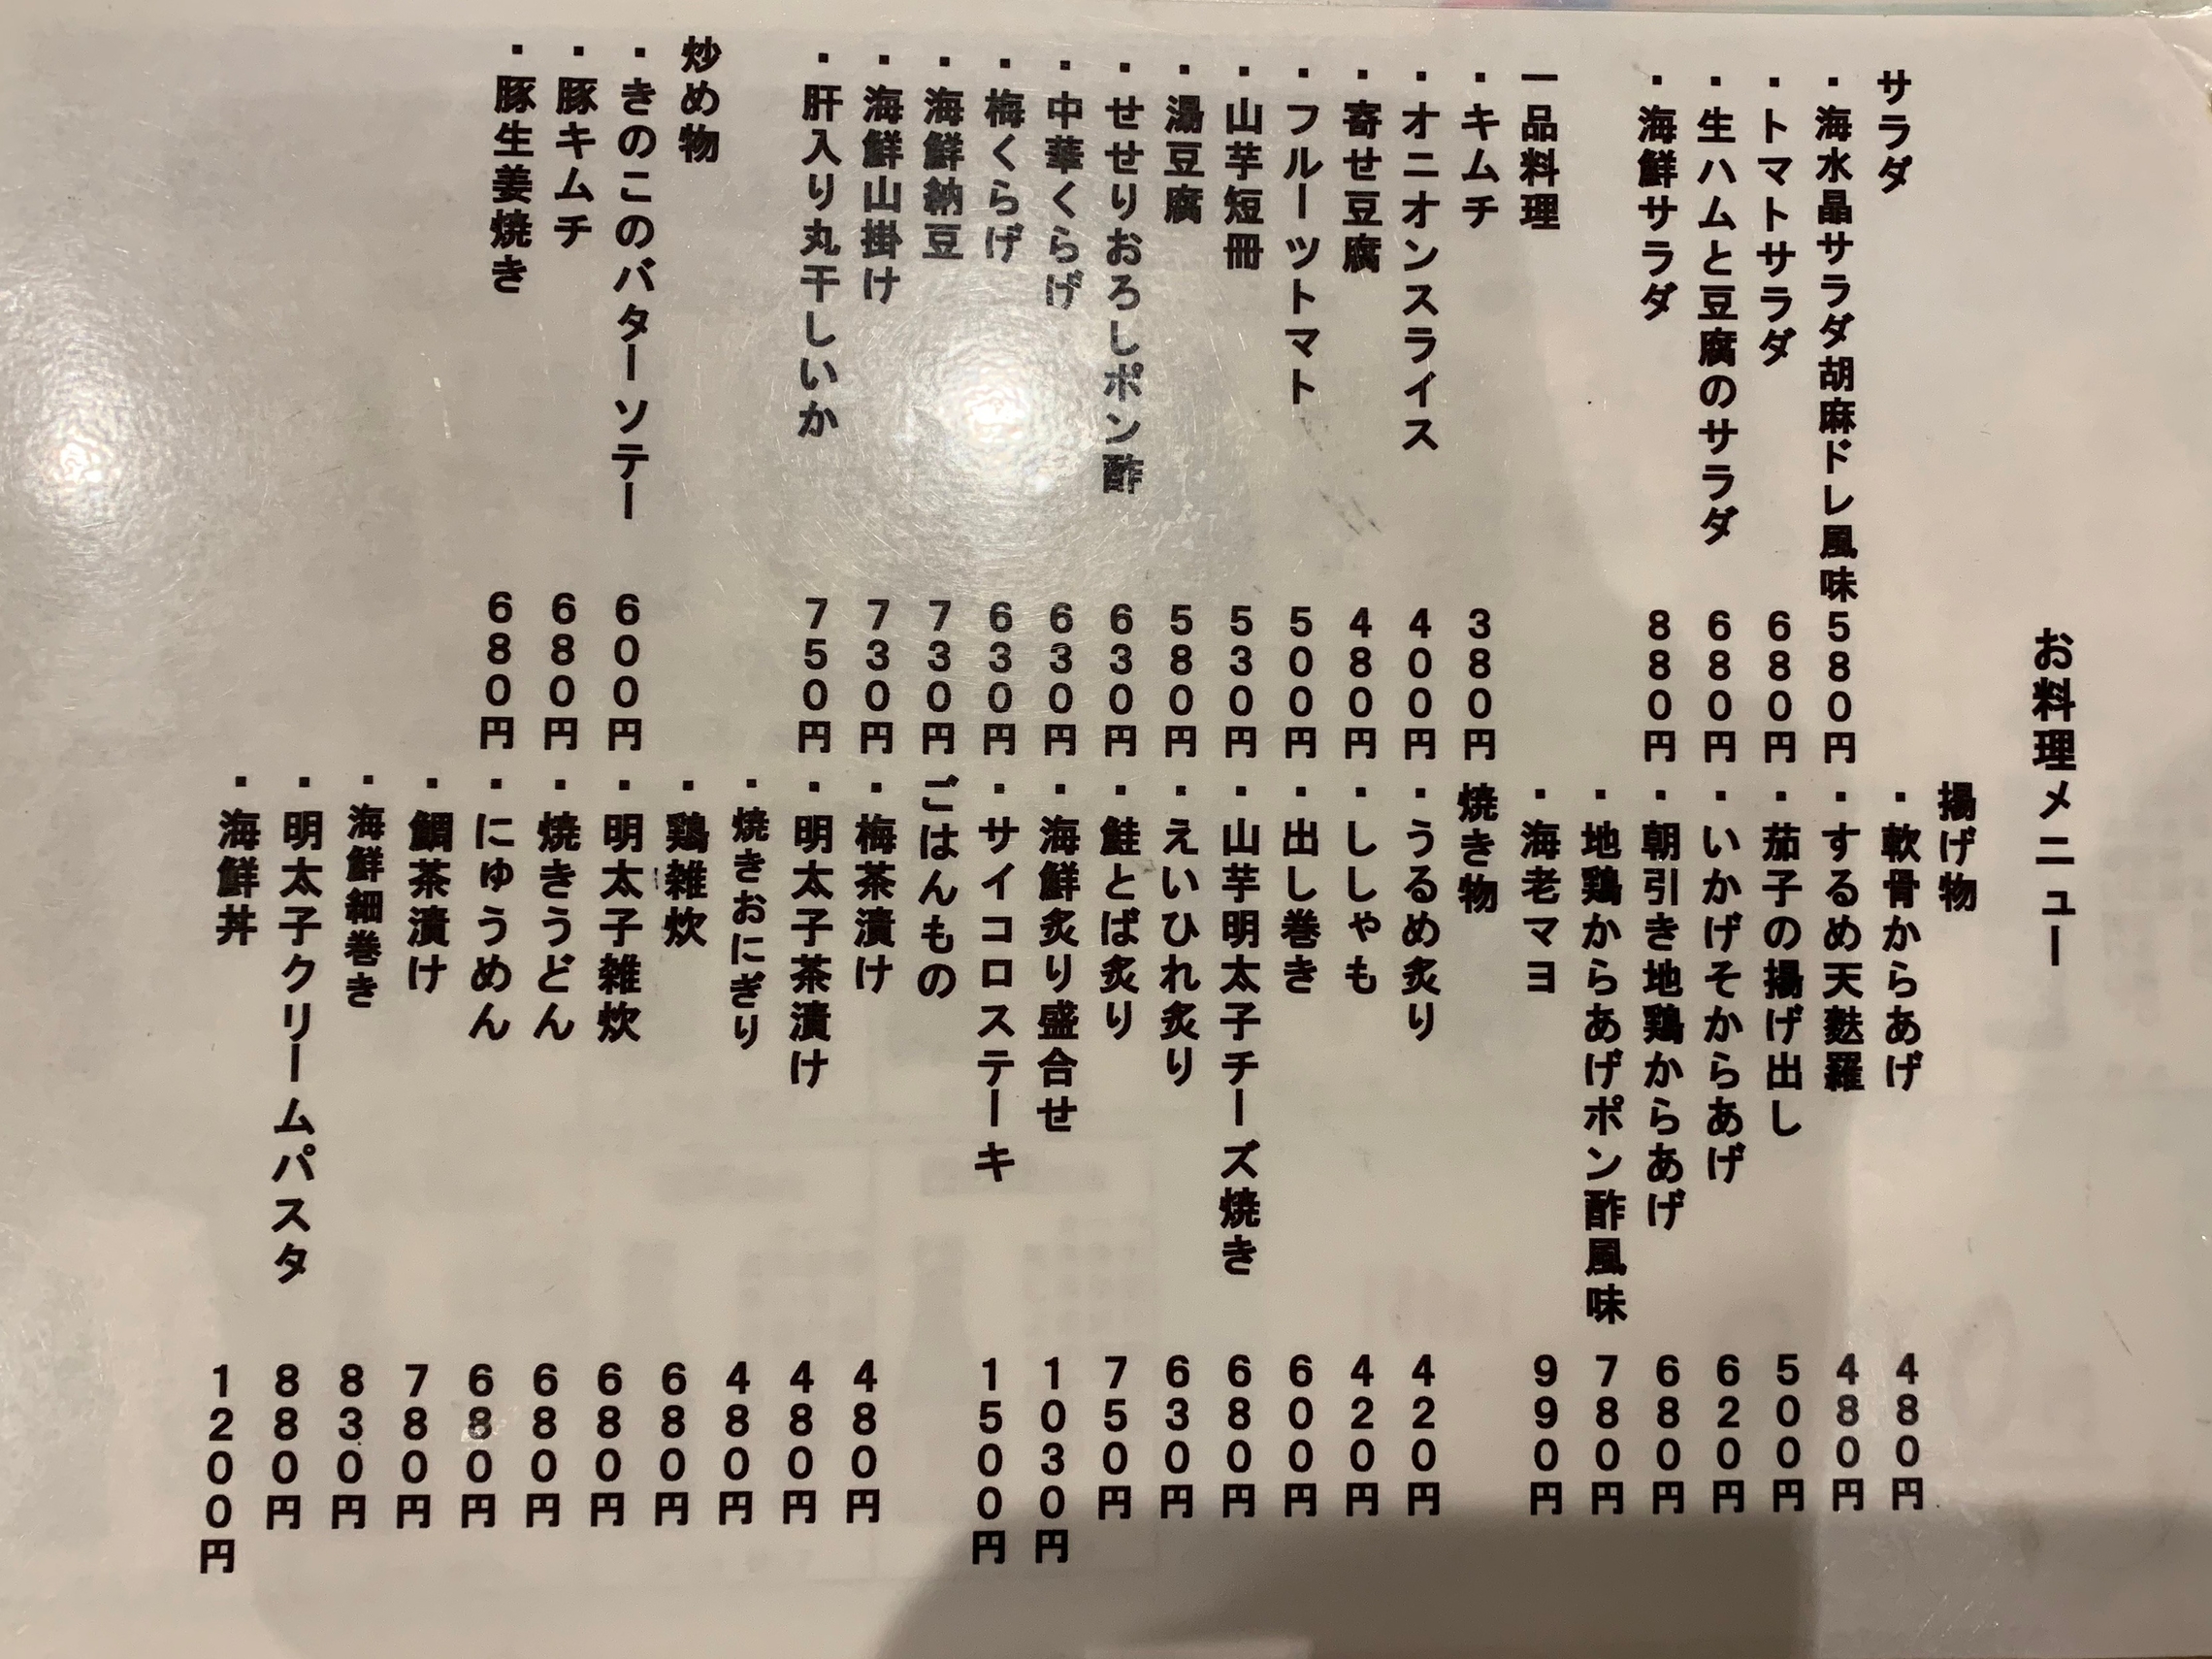 お料理メニュー
サラダ
・海水晶サラダ胡麻ドレ風味 580円
・トマトサラダ 680円
・生ハムと豆腐のサラダ 680円
・海鮮サラダ 880円
一品料理
・キムチ 380円
・オニオンスライス 400円
・寄せ豆腐 480円
・フルーツトマト 500円
・山芋短冊 530円
・湯豆腐 580円
・せせりおろしポン酢 630円
・中華くらげ 630円
・梅くらげ 630円
・海鮮納豆 730円
・海鮮山掛け 730円
・肝入り丸干しいか 750円
炒め物
・きのこのバターソテー 600円
・豚キムチ 680円
・豚生姜焼き 680円
揚げ物
・軟骨からあげ 480円
・するめ天麩羅 480円
・茄子の揚げ出し 500円
・いかげそからあげ 620円
・朝引き地鶏からあげ 680円
・地鶏からあげポン酢風味 780円
・海老マヨ 990円
焼き物
・うるめ炙り 420円
・ししゃも 420円
・出し巻き 600円
・山芋明太子チーズ焼き 680円
・えいひれ炙り 630円
・鮭とば炙り 750円
・海鮮炙り盛合せ 1030円
・サイコロステーキ 1500円
ごはんもの
・梅茶漬け 480円
・明太子茶漬け 480円
・焼きおにぎり 480円
・鶏雑炊 680円
・明太子雑炊 680円
・焼きうどん 680円
・にゅうめん 680円
・鯛茶漬け 780円
・海鮮細巻き 830円
・明太子クリームパスタ 880円
・海鮮丼 1200円